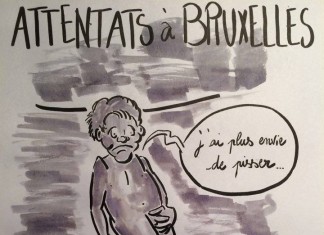 ATTENTATS à BRUXELLES
j'ai plus envie
de pisser...